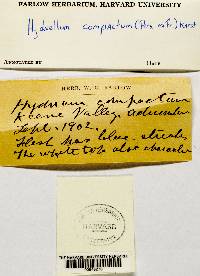 FARLOW HERBARIUM, HARVARD UNIVERSITY
Hydnellum compactum (Pers. ex Fr.) Karst
ANNOTATED BY DATE
HERB. W. G. FARLOW
Hydnum compactum
Keene Valley, Adirondacks
Sept. 1902.
Flesh has blue streaks
The white top also character
HARVARD